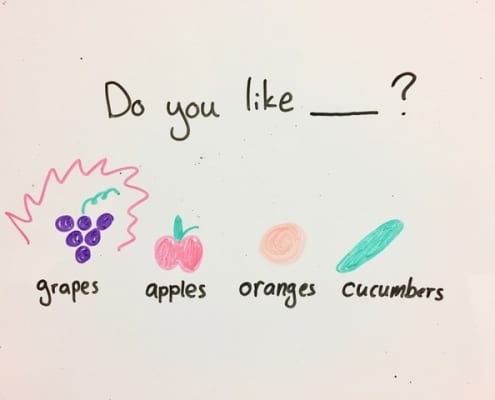 Do you like ___ ?
grapes apples oranges cucumbers